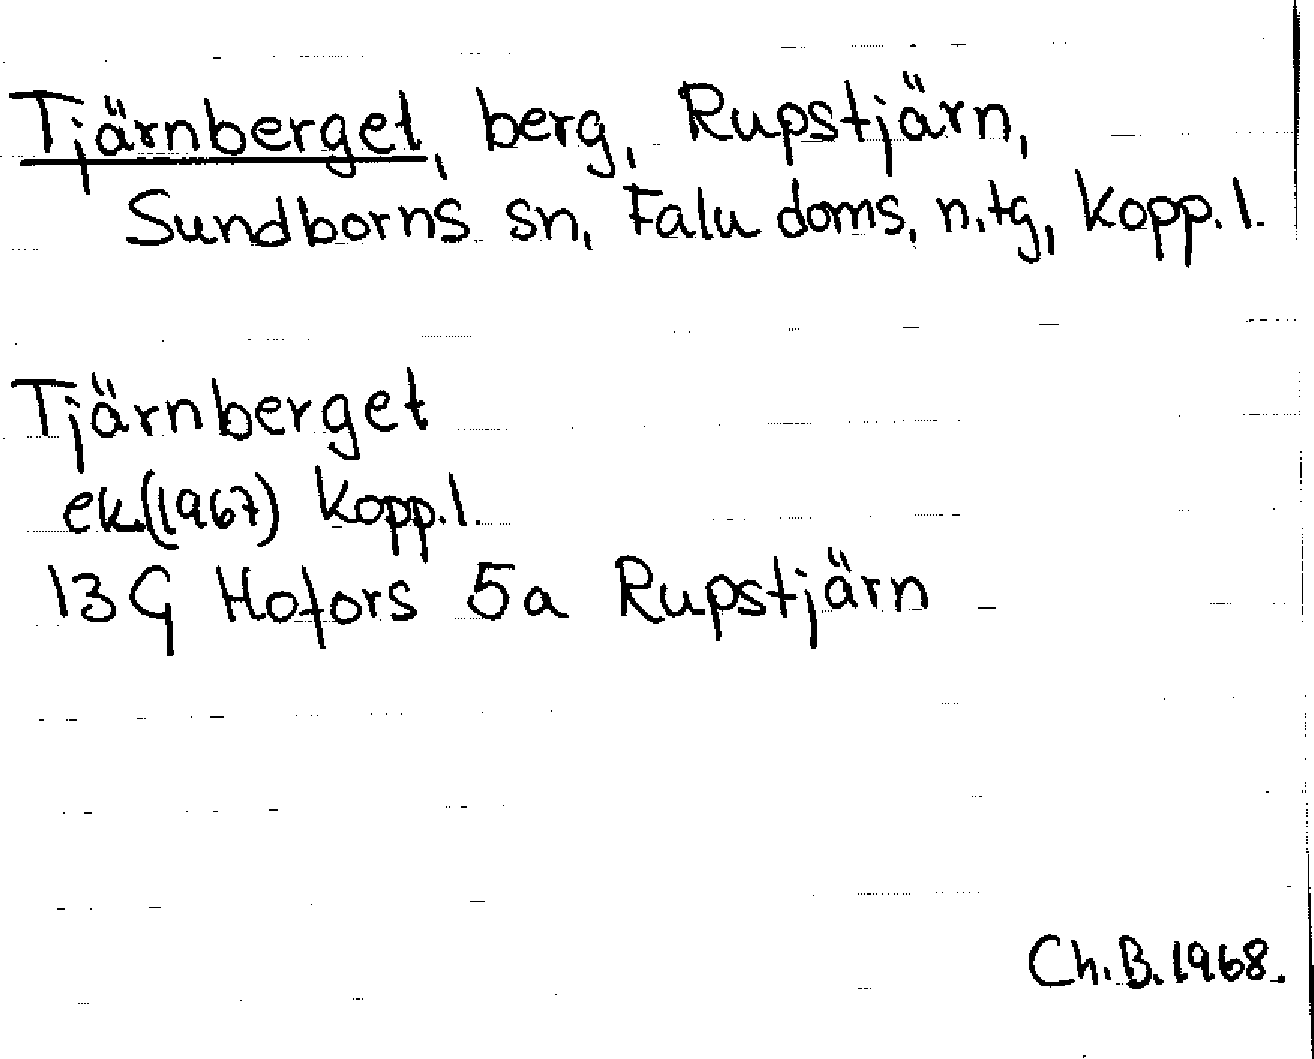 Tjärnberget, berg, Rupstjärn,
Sundborns sn, Falu doms, n.tg, Kopp.l.
Tjärnberget
ek.(1967) Kopp.l.
13G Hofors 5a Rupstjärn
Ch.B.1968.